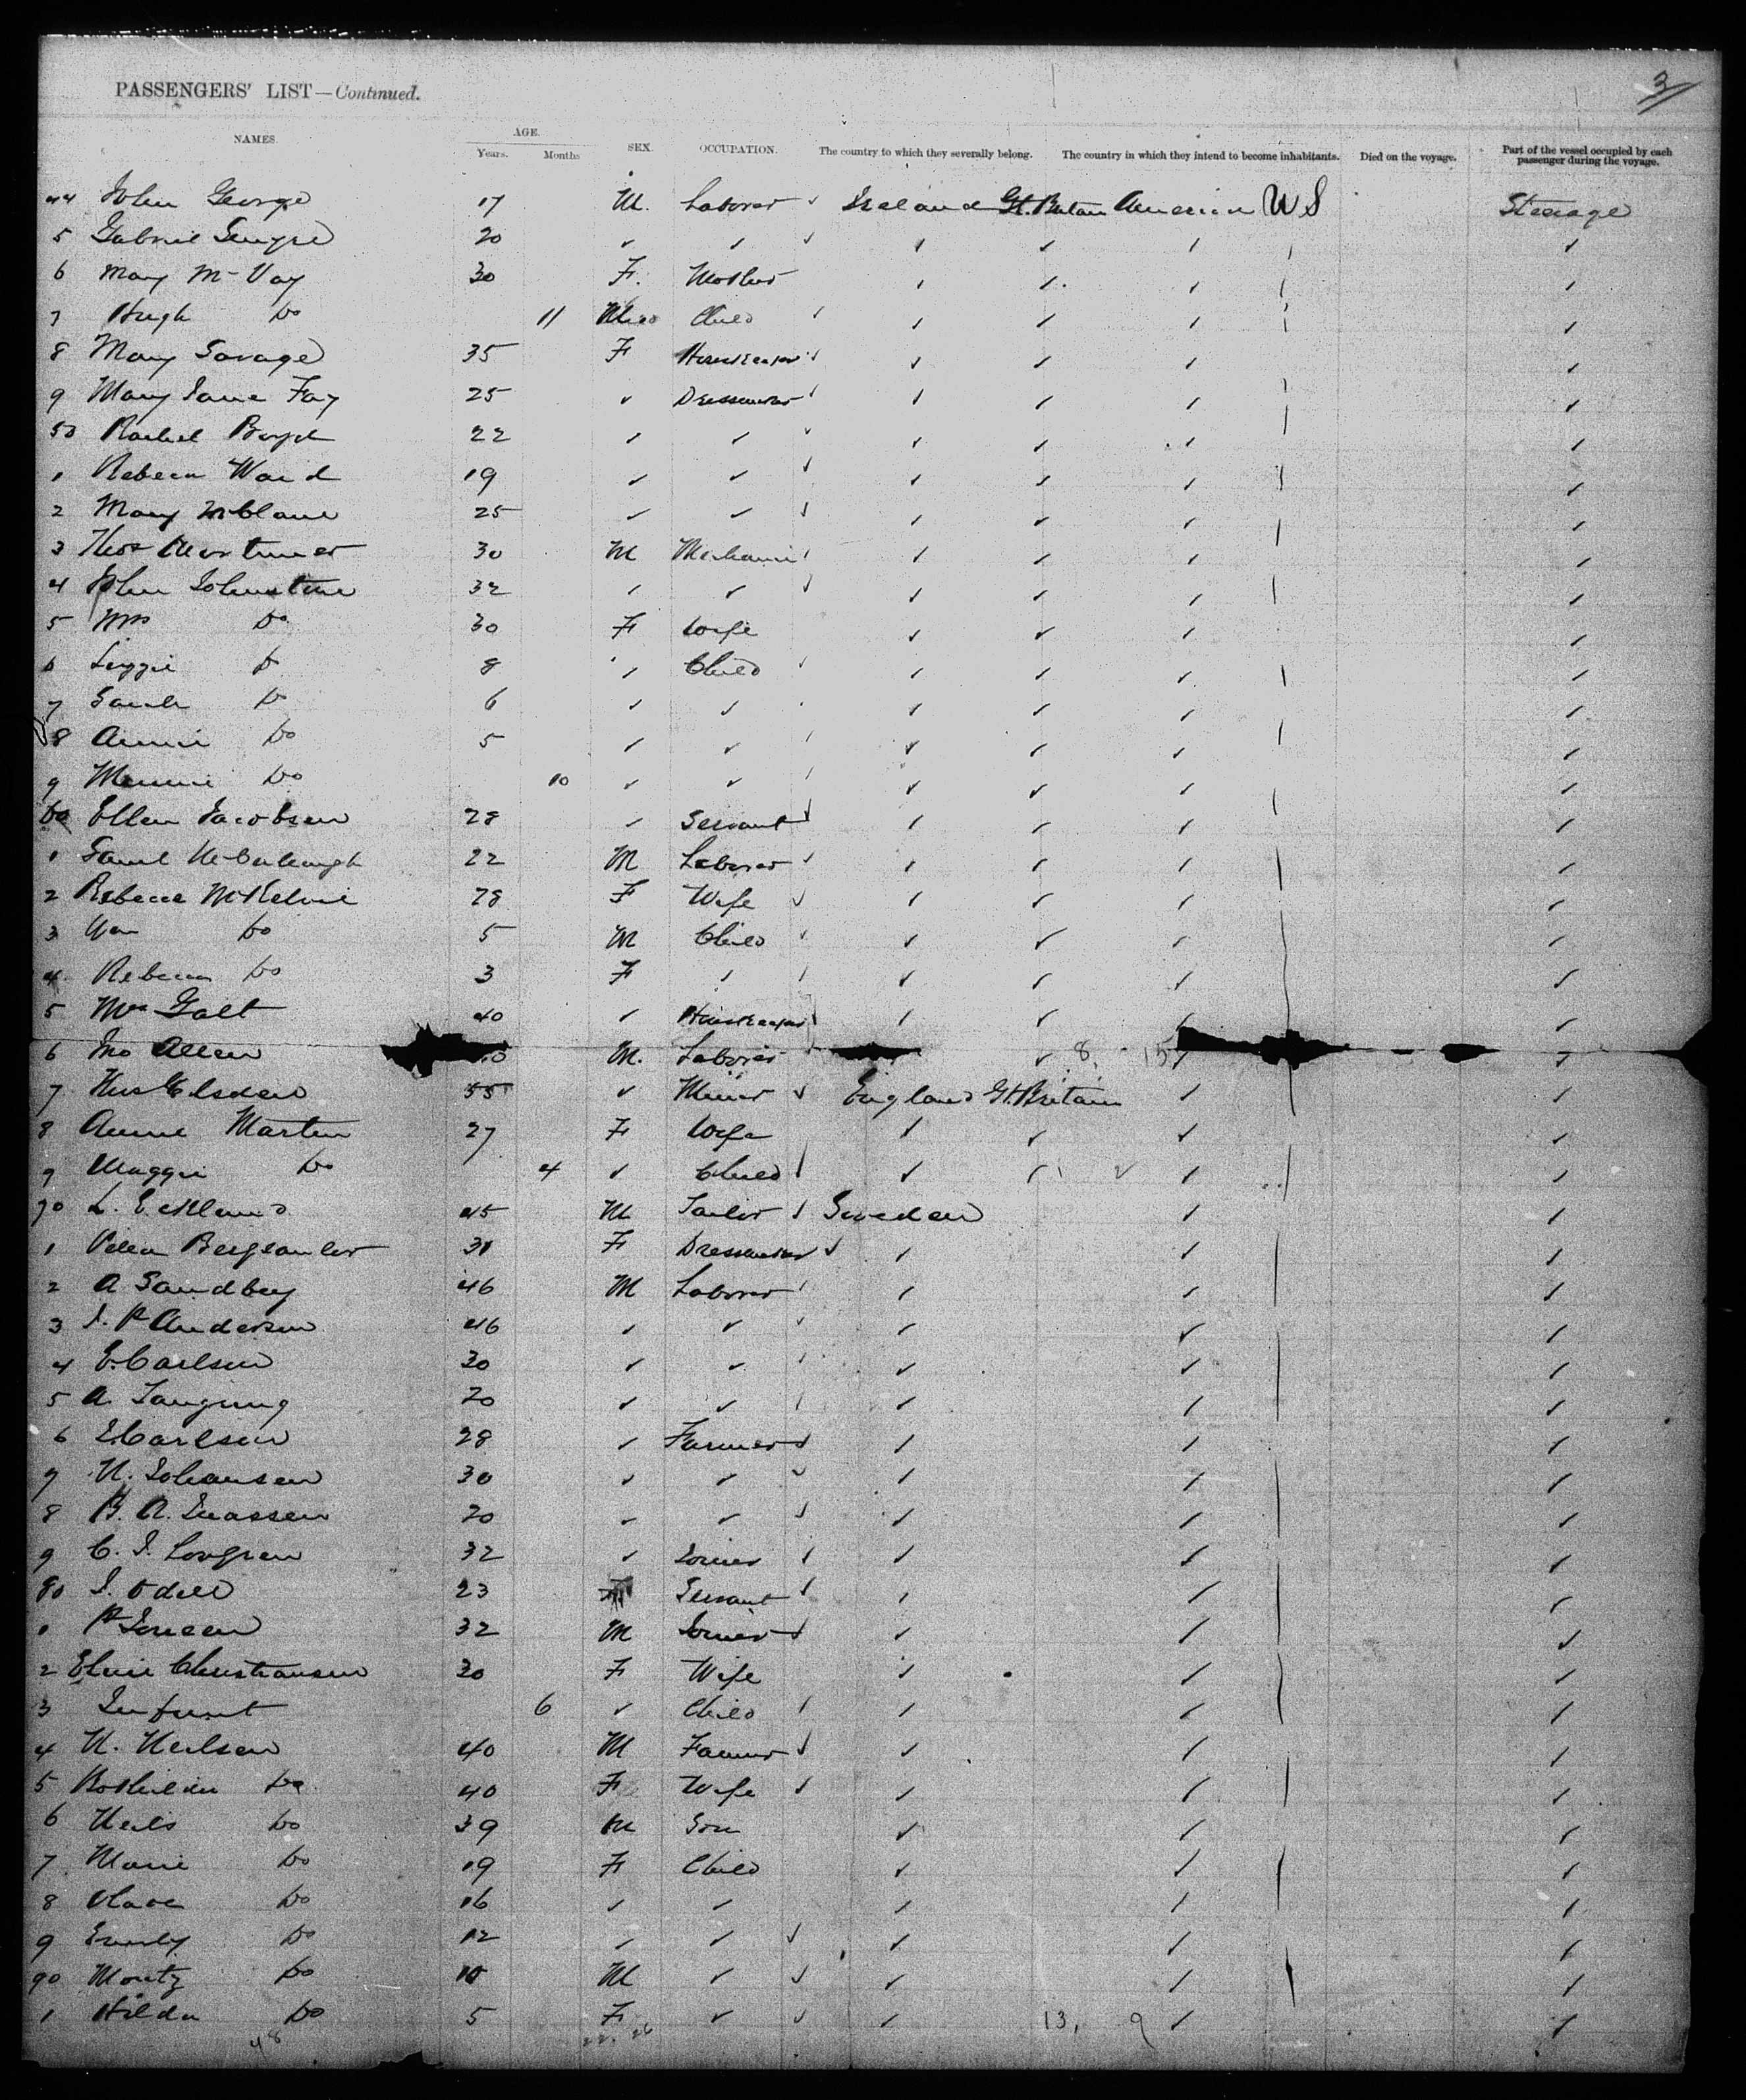 3
PASSENGERS' LIST—Continued.
NAMES. AGE. Years. Months. SEX. OCCUPATION. The country to which they severally belong. The country in which they intend to become inhabitants. Died on the voyage. Part of the vessel occupied by each passenger during the voyage.
44 John George 17 M. Laborer ✓ Ireland Gt. Britain America U S Steerage
5 Gabriel 20 ✓ ✓ ✓
6 Mary McVay 30 F. Mother
7 Hugh Do 11 Child
8 Mary Savage 35 F Housekeeper
9 Mary Jane Fay 25 ✓ Dressmaker
50 Rachel Boyd 22 ✓ ✓
1 Rebecca Ward 19 ✓ ✓
2 Mary 25 ✓ ✓
3 Thos Mortimer 30 M Mechanic
4 John Johnstone 32 ✓ ✓
5 Mrs Do 30 F Wife
6 Lizzie Do 8 ✓ Child
7 Sarah Do 6 ✓ ✓
8 Annie Do 5 ✓ ✓
9 Minnie Do 10 ✓ ✓
60 Ellen Jacobsen 28 ✓ Servant
1 Saml McCullough 22 M Laborer
2 Rebecca McKelvie 28 F Wife
3 Wm Do 5 M Child
4 Rebecca Do 3 F ✓
5 Mrs Galt 40 ✓ Housekeeper
6 Jno Allen M. Laborer 8. 15
7 Thos Elsden 55 ✓ Miner ✓ England Gt. Britain
8 Annie Martin 27 F Wife
9 Maggie Do 4 ✓ Child
70 L. Ecklund 45 M Tailor Sweden
1 31 F Dressmaker
2 A Sandberg 46 M Laborer
3 J. P Anderson 46 ✓ ✓
4 E. Carlson 30 ✓ ✓
5 A. 20 ✓ ✓
6 E. Carlson 28 ✓ Farmer
7 N. Johansen 30 ✓ ✓
8 B. A. 20 ✓ ✓
9 C. J. Lovgren 32 ✓ Joiner
80 J. Odell 23 Servant
1 P 32 M Joiner
2 Christiansen 30 F Wife
3 Infant 6 ✓ Child
4 N. Neilsen 40 M Farmer
5 Do 40 F Wife
6 Neils Do 39 M Son
7 Marie Do 19 F Child
8 Do 16 ✓ ✓
9 Emily Do 12 ✓ ✓
90 Moritz Do 10 M ✓
1 Hilda Do 5 F ✓ 13, 9
48 22. 26